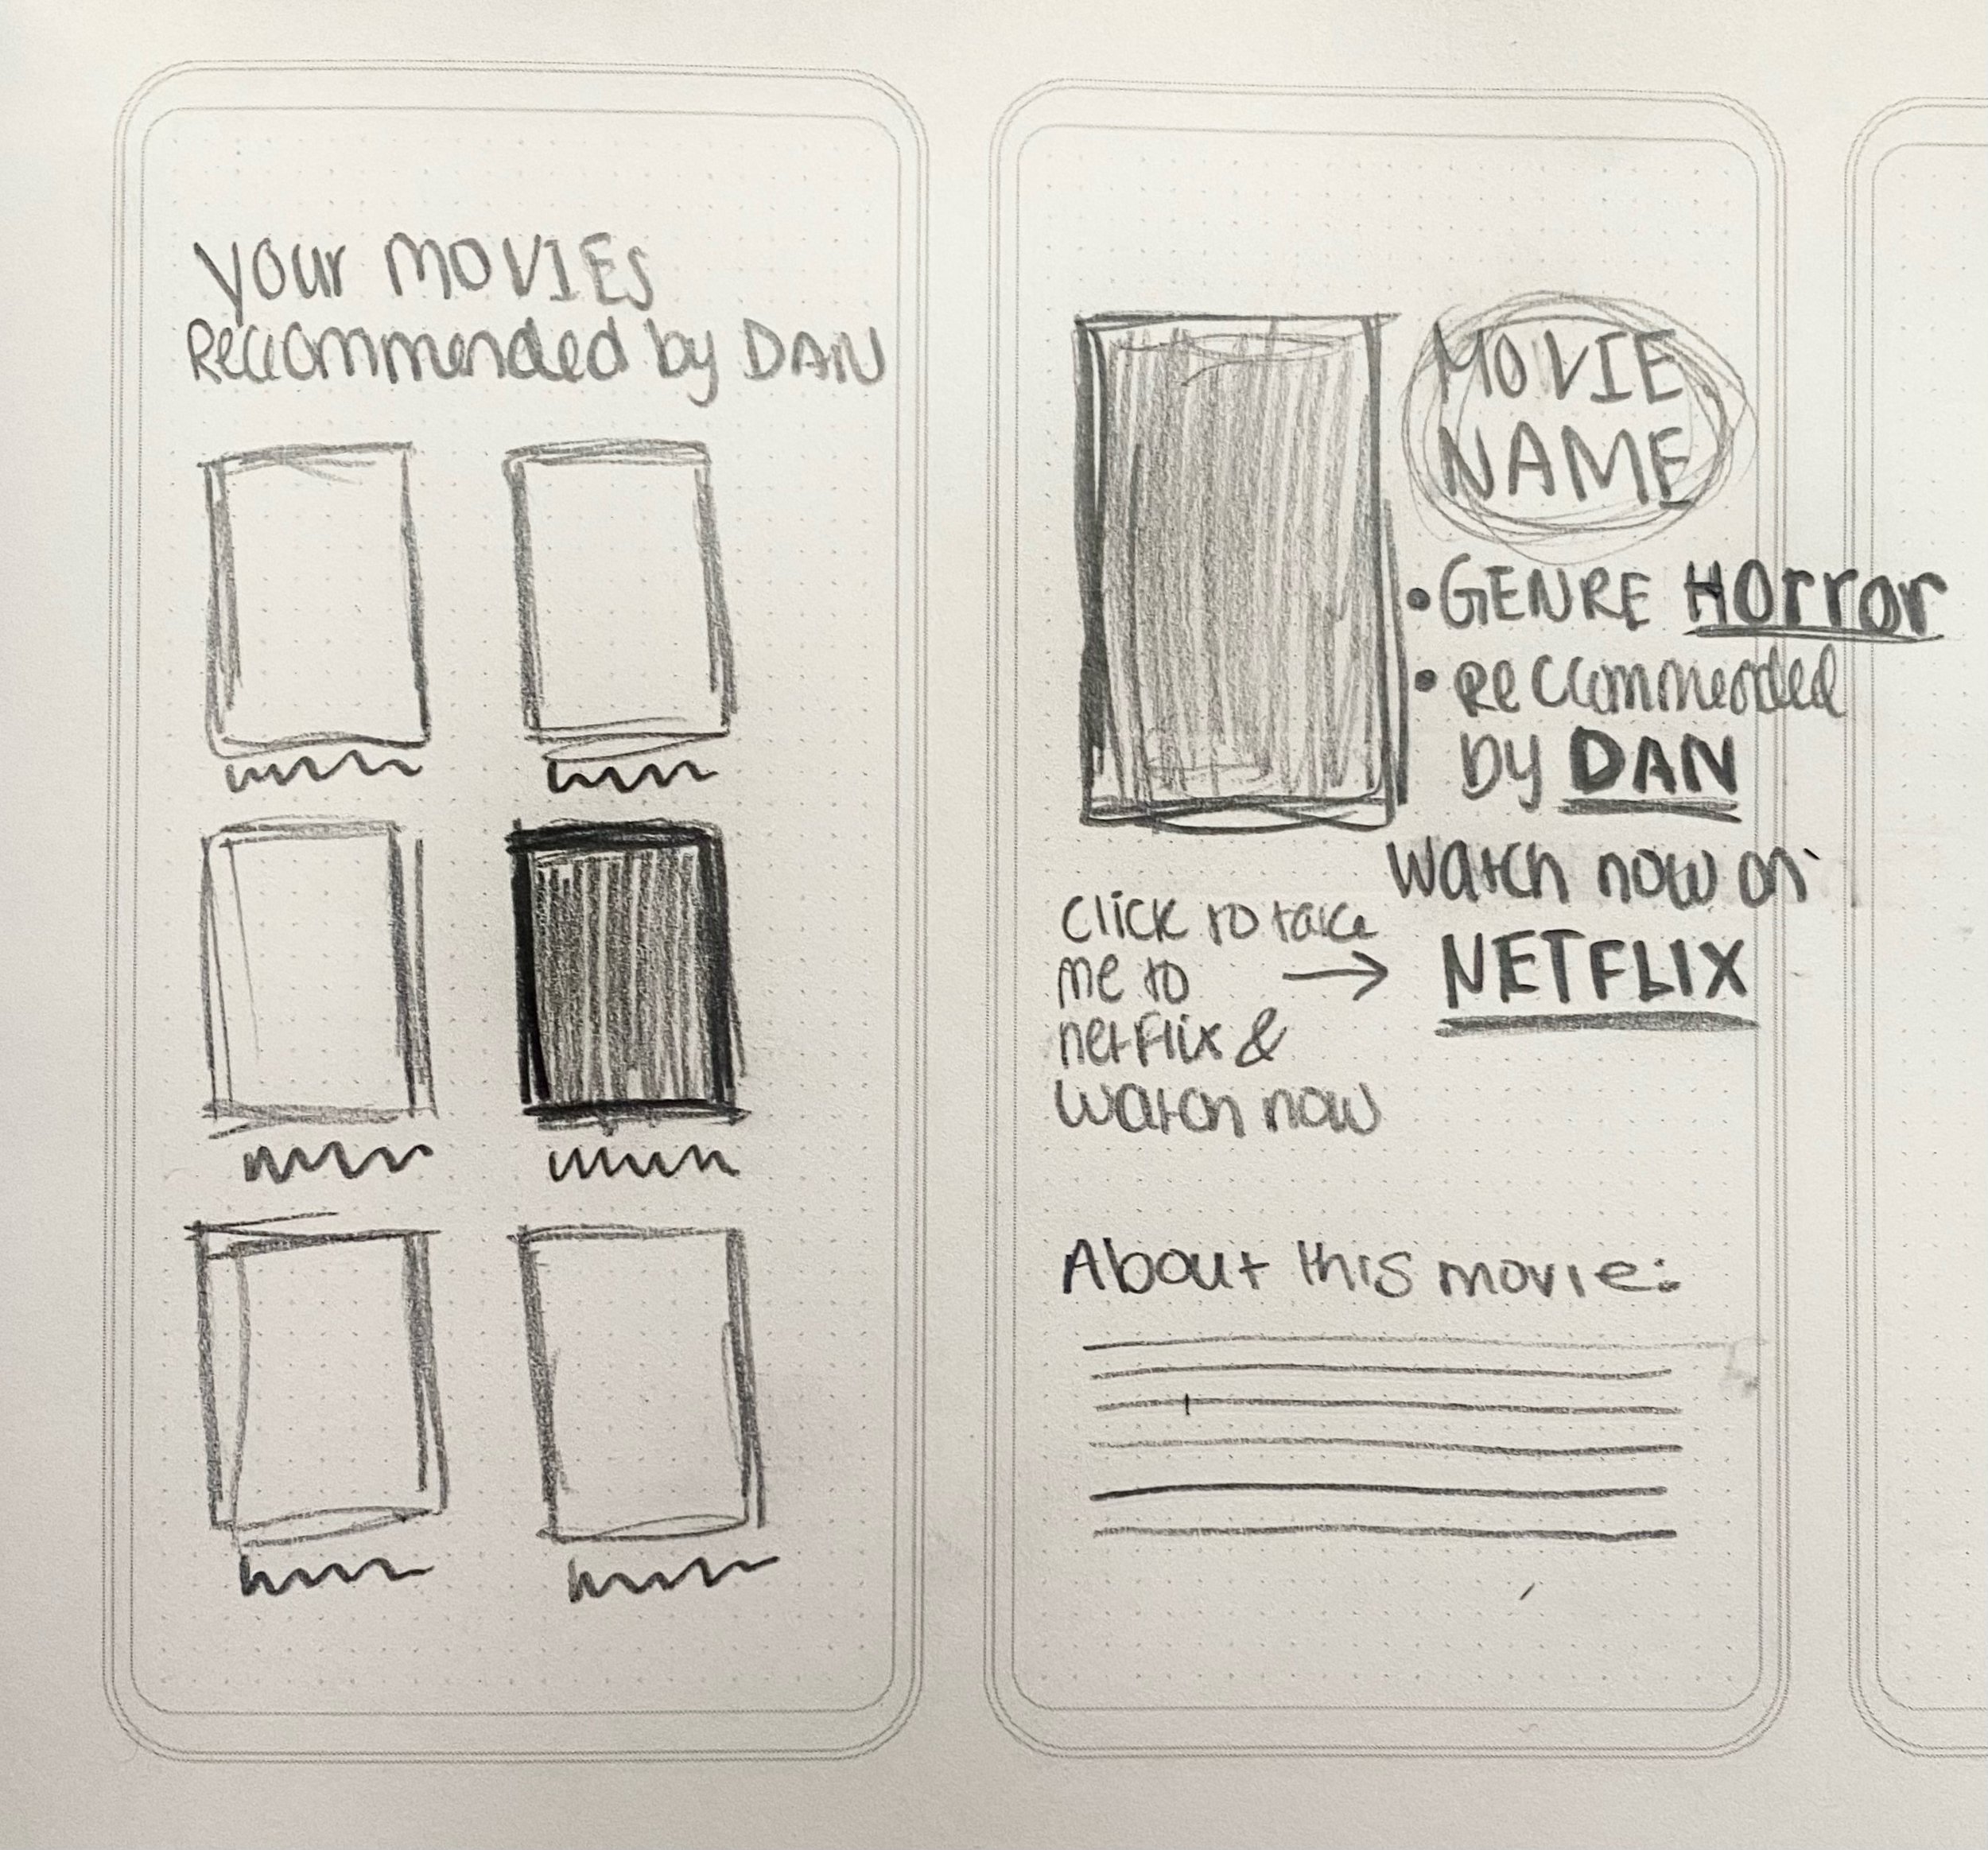 your MOVIES
Reccommended by DAN
MOVIE
NAME
• GENRE Horror
• Reccommended
by DAN
Watch now on
NETFLIX
Click to take
me to →
netflix &
watch now
About this movie: